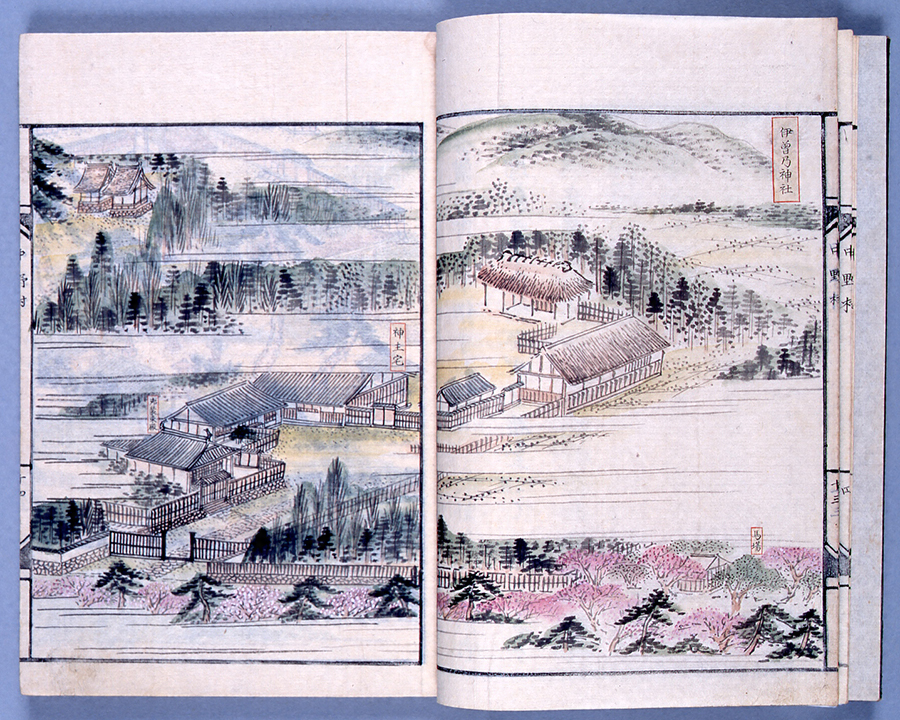 伊曽乃神社
中野村
中野村
十三
馬場
神主宅